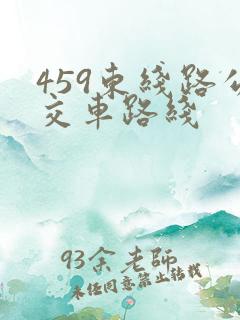 459東綫路公
交車路綫
93余老師
未经同意禁止转载